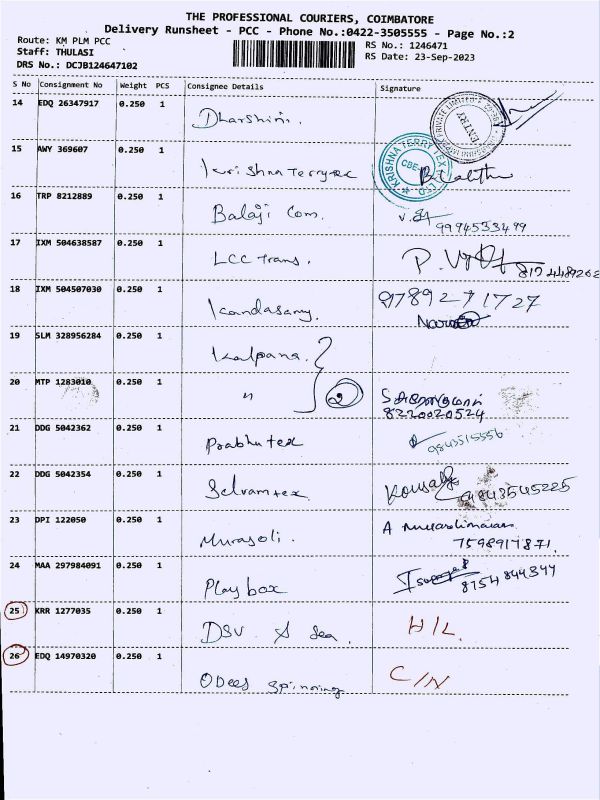 THE PROFESSIONAL COURIERS, COIMBATORE
Delivery Runsheet - PCC - Phone No.:0422-3505555 - Page No.:2
Route: KM PLM PCC
RS No.: 1246471
Staff: THULASI
RS Date: 23-Sep-2023
DRS No.: DCJB124647102
S No Consignment No Weight PCS Consignee Details Signature
14 EDQ 26347917 0.250 1 Dharshini.
ENTRY
15 AWY 369607 0.250 1 Krishna Terrytex
KRISHNA TERRY TEX
CBE
16 TRP 8212889 0.250 1 Balaji Com.
9994533499
17 IXM 504638587 0.250 1 LCC trans.
18 IXM 504507030 0.250 1 Kandasamy.
9789271727
19 SLM 328956284 0.250 1 Kalpana.
20 MTP 1283010 0.250 1 " 2
8220020524
21 DDG 5042362 0.250 1 Prabhu tex
9843515556
22 DDG 5042354 0.250 1 Selvamtex.
9843545225
23 DPI 122050 0.250 1 Murasoli.
7598917871.
24 MAA 297984091 0.250 1 Play box
8754844344
25 KRR 1277035 0.250 1 DSV & Sea. H/L.
26 EDQ 14970320 0.250 1 Obees spinning C/N